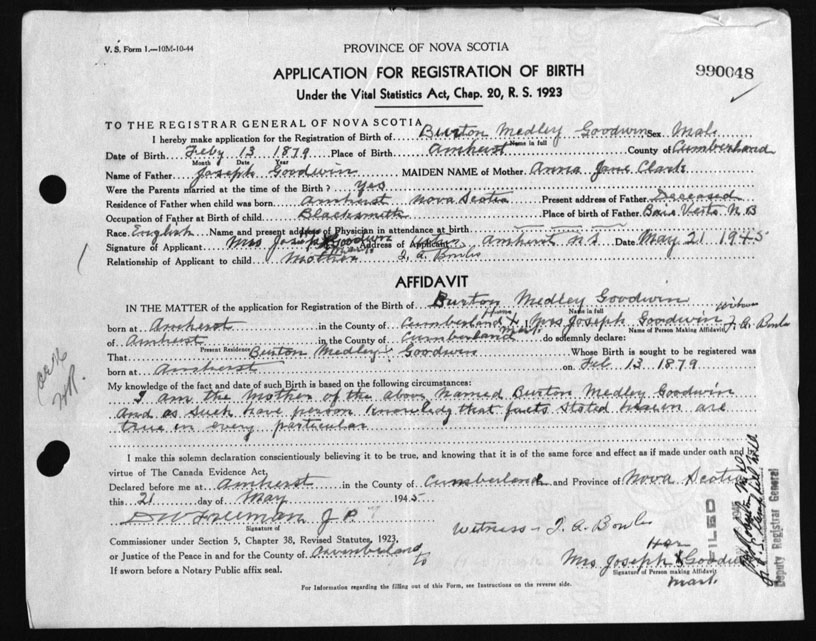 V. S. Form 1.—10M-10-44
PROVINCE OF NOVA SCOTIA
APPLICATION FOR REGISTRATION OF BIRTH
990048
Under the Vital Statistics Act, Chap. 20, R. S. 1923
TO THE REGISTRAR GENERAL OF NOVA SCOTIA
I hereby make application for the Registration of Birth of Burton Medley Goodwin Sex Male
Name in full
Date of Birth Feby 13 1879 Place of Birth Amherst County of Cumberland
Month Date Year
Name of Father Joseph Goodwin MAIDEN NAME of Mother Anna Jane Clark
Were the Parents married at the time of the Birth? Yes
Residence of Father when child was born Amherst Nova Scotia Present address of Father Deceased
Occupation of Father at Birth of child Blacksmith Place of birth of Father Baie Verte N B
Race English Name and present address of Physician in attendance at birth
Signature of Applicant Mrs Joseph X Goodwin Address of Applicant Amherst N S Date May 21 1945
Relationship of Applicant to child Mother
AFFIDAVIT
IN THE MATTER of the application for Registration of the Birth of Burton Medley Goodwin
Name in full
born at Amherst in the County of Cumberland I, Mrs Joseph Goodwin
Name of Person Making Affidavit
of Amherst in the County of Cumberland do solemnly declare:
Present Residence
That Burton Medley Goodwin Whose Birth is sought to be registered was
born at Amherst on Feb 13 1879
My knowledge of the fact and date of such Birth is based on the following circumstances:
I am the Mother of the above named Burton Medley Goodwin
and as such have person knowledg that facts stated herein are
true in every particular
I make this solemn declaration conscientiously believing it to be true, and knowing that it is of the same force and effect as if made under oath and by
virtue of The Canada Evidence Act,
Declared before me at Amherst in the County of Cumberland and Province of Nova Scotia
this 21 day of May 1945
D W Freeman J P
Signature of
Witness - J. A. Bowls
Commissioner under Section 5, Chapter 38, Revised Statutes, 1923,
or Justice of the Peace in and for the County of Cumberland
Her
Mrs Joseph X Goodwin
Signature of Person making Affidavit
mark
If sworn before a Notary Public affix seal.
For Information regarding the filling out of this Form, see Instructions on the reverse side.
FILED
Deputy Registrar General